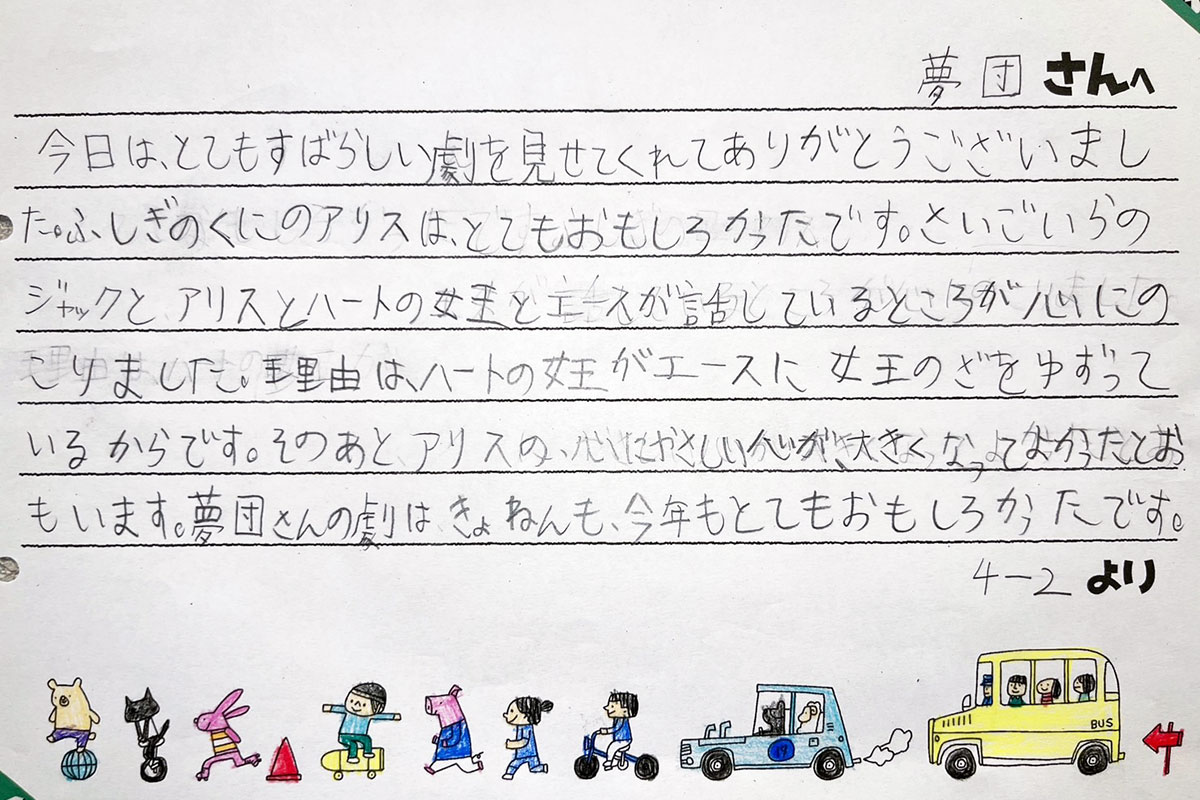 夢団さんへ
今日は、とてもすばらしい劇を見せてくれてありがとうございまし
た。ふしぎのくにのアリスは、とてもおもしろかったです。さいごいらの
ジャックと、アリスとハートの女王とエースが話しているところが心にの
こりました。理由は、ハートの女王がエースに女王のざをゆずって
いるからです。そのあと、アリスの、心にやさしい心が、大きくなってよかったとお
もいます。夢団さんの劇はきょねんも、今年もとてもおもしろかったです。
4-2より
BUS
19